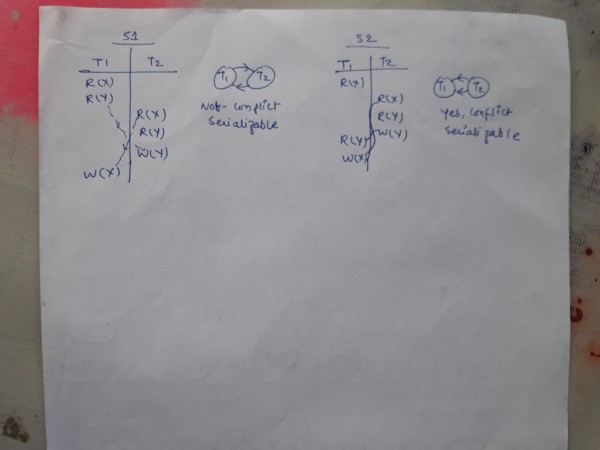 S1
T1 T2
R(X)
R(Y)
R(X)
R(Y)
W(Y)
W(X)
T1 T2
Not- conflict
Serializable
S2
T1 T2
R(X)
R(X)
R(Y)
W(Y)
R(Y)
W(X)
T1 T2
Yes, conflict
Serializable